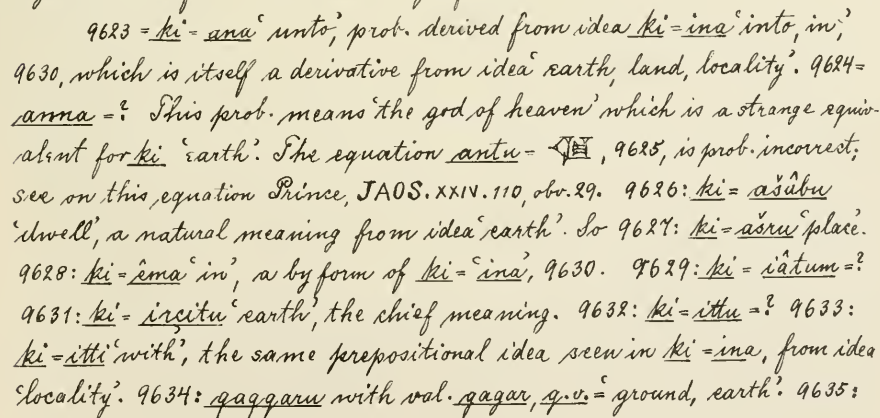 9623 = ki = ana ‘unto’, prob. derived from idea ki = ina ‘into, in,’
9630, which is itself a derivative from idea ‘earth, land, locality’. 9624 =
anna = ? This prob. means ‘the god of heaven’ which is a strange equiv-
alent for ki ‘earth’. The equation antu = 𒆠, 9625, is prob. incorrect;
see on this equation Prince, JAOS. XXIV. 110, obv. 29. 9626: ki = ašâbu
‘dwell’, a natural meaning from idea ‘earth’. So 9627: ki = ašru ‘place’.
9628: ki = êma ‘in’, a by form of ki = ‘ina’, 9630. 9629: ki = iâtum = ?
9631: ki = irçitu ‘earth’, the chief meaning. 9632: ki = ittu = ? 9633:
ki = itti ‘with’, the same prepositional idea seen in ki = ina, from idea
‘locality’. 9634: qaqqaru with val. qaqar, q.v. = ‘ground, earth’. 9635: